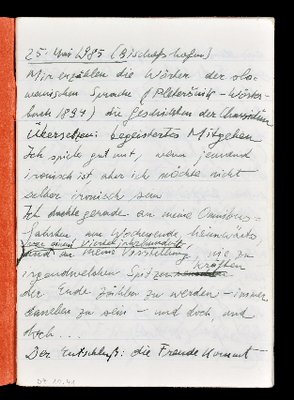 25. Mai 1985 (Bischofshofen)
Mir erzählen die Wörter der slo-
wenischen Sprache (Pleteršnik-Wörter-
buch 1894) die Geschichten der
Übersetzen: begeistertes Mitgehen
Ich spiele gut mit, wenn jemand
ironisch ist, aber ich möchte nicht
selber ironisch sein
Ich dachte gerade an meine Omnibus-
fahrten, am Wochenende, heimwärts,
vor einem Vierteljahrhundert
und an meine Vorstellung, nie zu
irgendwelchen Spitzenkräften
der Erde zählen zu werden - immer
daneben zu sein - und doch, und
doch...
Der Entschluß: die Freude kommt -